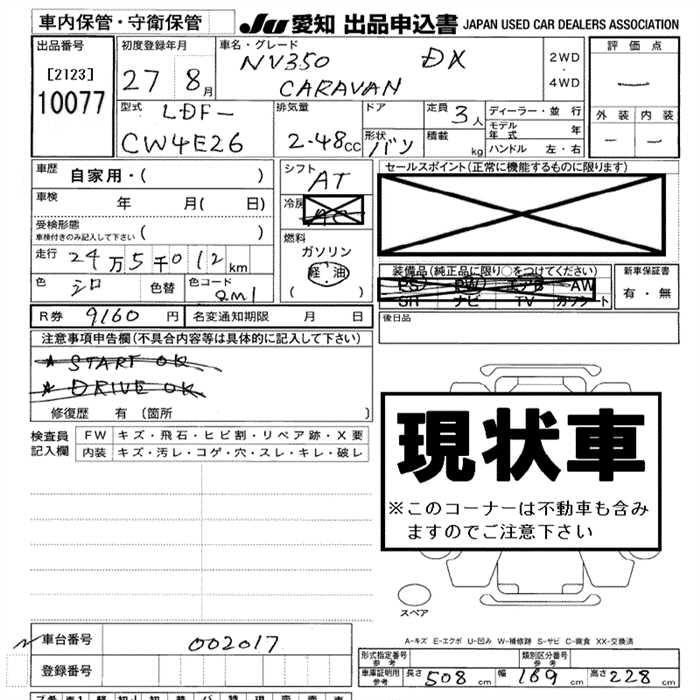 車内保管・守衛保管
JU 愛知 出品申込書 JAPAN USED CAR DEALERS ASSOCIATION
出品番号
[2123]
10077
初度登録年月
27 8月
車名・グレード
NV350 DX
CARAVAN
2WD
・
4WD
評価点
—
外装 内装
— —
型式
LDF-
CW4E26
排気量
2.48cc
ドア
形状 バン
定員 3人
積載 kg
ディーラー・並行
モデル年式 年
ハンドル 左・右
車歴 自家用・( )
車検 年 月( 日)
受検形態
車検付きのみ記入して下さい ( )
走行 24万5千012km
色 シロ 色替 色コード QM1
シフト AT
冷房 AC
燃料
ガソリン
軽・油
( )
セールスポイント(正常に機能するものに限ります)
装備品(純正品に限り○をつけてください)
PS PW エアB AW
SR ナビ TV カワシート
新車保証書
有・無
R券 9160円 名変通知期限 月 日
後日品
注意事項申告欄(不具合内容等は具体的に記入して下さい)
★ START OK
★ DRIVE OK
修復歴 有(箇所 )
検査員記入欄
FW キズ・飛石・ヒビ割・リペア跡・X要
内装 キズ・汚レ・コゲ・穴・スレ・キレ・破レ
現状車
※このコーナーは不動車も含み
ますのでご注意下さい
スペア
A-キズ E-エクボ U-凹み W-補修跡 S-サビ C-腐食 XX-交換済
車台番号 002017
登録番号
形式指定番号 参考
類別区分番号 参考
車庫証明用 参考 長さ 508cm 幅 169cm 高さ 228cm